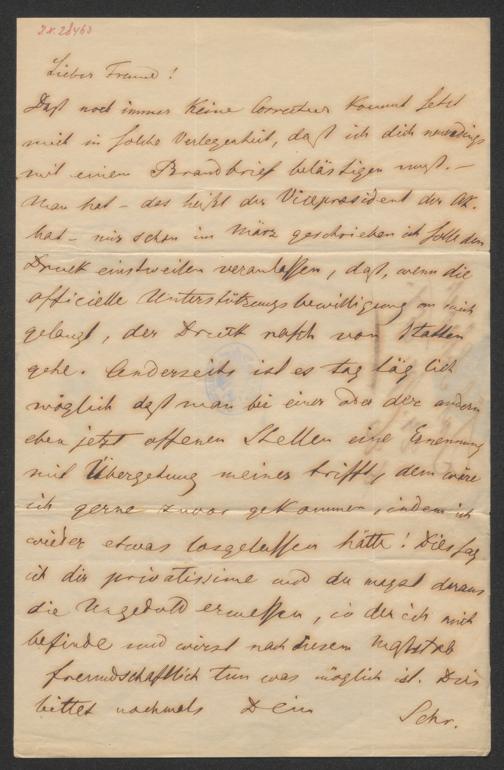 IX. 28460
Lieber Freund!
Daß noch immer keine Correctur kommt setzt
mich in solche Verlegenheit, daß ich dich neuerdings
mit einem Brandbrief belästigen muß. –
Man hat – das heißt der Vicepräsident der Ak.
hat – mir schon im März geschrieben ich solle den
Druck einstweilen veranlassen, daß, wenn die
officielle Unterstützungsbewilligung an mich
gelangt, der Druck rasch von Statten
gehe. Anderseits ist es tag täglich
möglich daß man bei einer oder der andern
eben jetzt offenen Stellen eine Ernennung
mit Übergehung meiner trifft, dem wäre
ich gerne zuvor gekommen, indem ich
wieder etwas losgelassen hätte! Dies sag
ich dir privatissime und du magst daraus
die Ungeduld ermessen, in der ich mich
befinde und wirst nach diesem Maßstab
freundschaftlich tun was möglich ist. Dies
bittet nochmals Dein Schr.